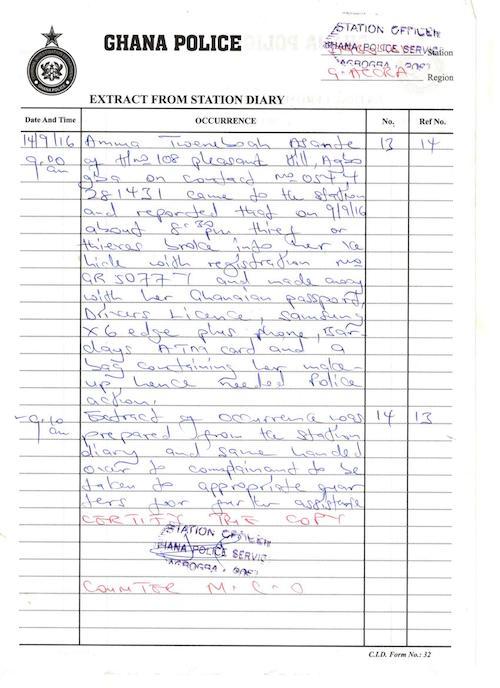 GHANA POLICE
STATION OFFICER
GHANA POLICE SERVICE
Station
AGBOGBA
G. ACCRA
Region
EXTRACT FROM STATION DIARY
Date And Time OCCURRENCE No. Ref No.
14/9/16 Amma Tweneboah Asante 13 14
9:00 of H/no 108 pleasant Hill, Agbo
am gba on contact no 0544
281431 came to the station
and reported that on 9/9/16
about 8:30 pm thief or
thieves broke into her ve
hicle with registration no
GR 5077 Y and made away
with her Ghanaian passport,
Drivers Licence, Samsung
X6 edge plus phone, Bar-
clays ATM card and a
bag containing her make-
up, hence needed Police
action.
-9:10 Extract of occurrence was 14 13
am prepared from the station
diary and same handed
over to complainant to be
taken to appropriate quar
ters for further assistance
CERTIFY TRUE COPY
STATION OFFICER
GHANA POLICE SERVICE
AGBOGBA
COUNTER N.C.O
C.I.D. Form No.: 32